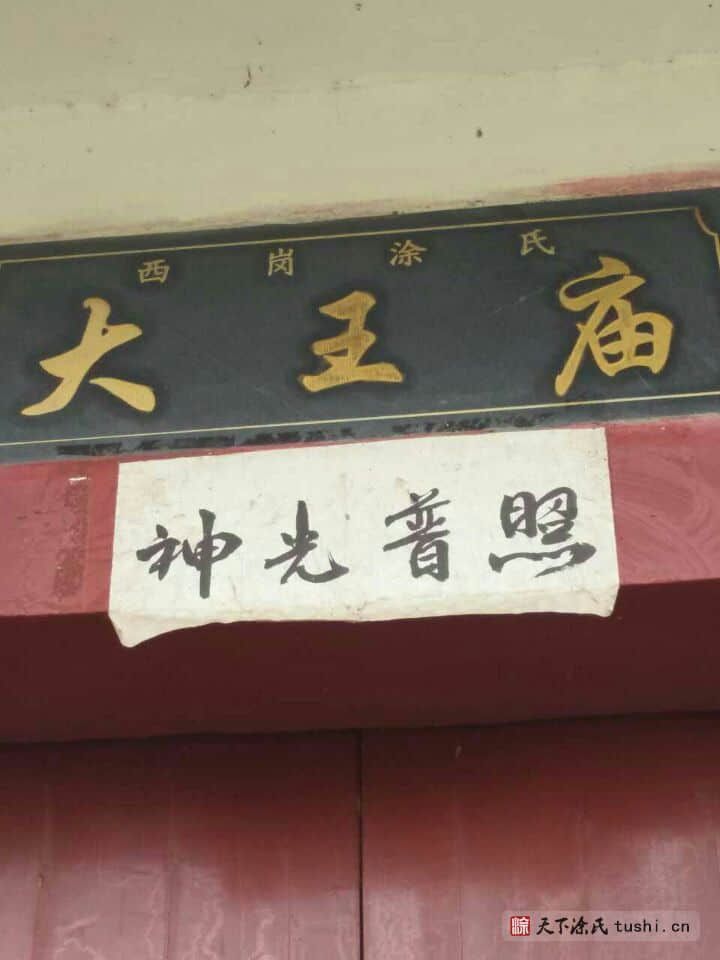 西岗涂氏
大王庙
神光普照
天下涂氏 tushi.cn